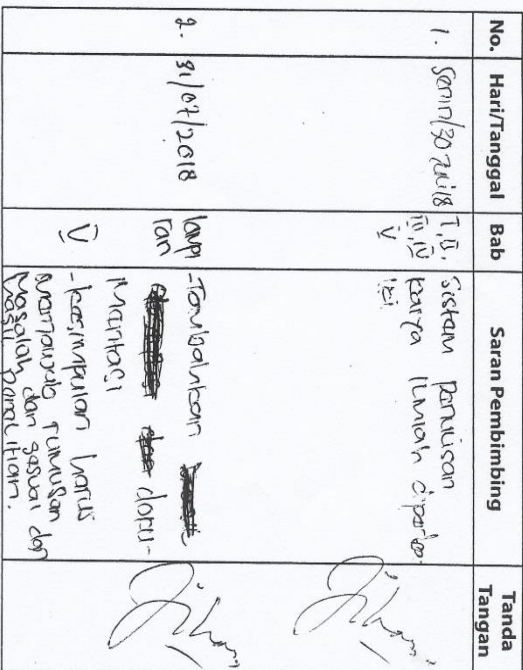 No. Hari/Tanggal Bab Saran Pembimbing Tanda Tangan
1. Senin/30 Juli 18
I, II,
III, IV
V
Sistem Penulisan
karya ilmiah diperba-
iki
2. 31/07/2018
lampi
ran
- Tambahkan
doku-
mentasi
V
- kesimpulan harus
menjawab rumusan
masalah dan sesuai dgn
hasil penelitian.